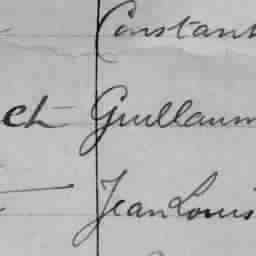 Constant
ch Guillaum
Jean Louis